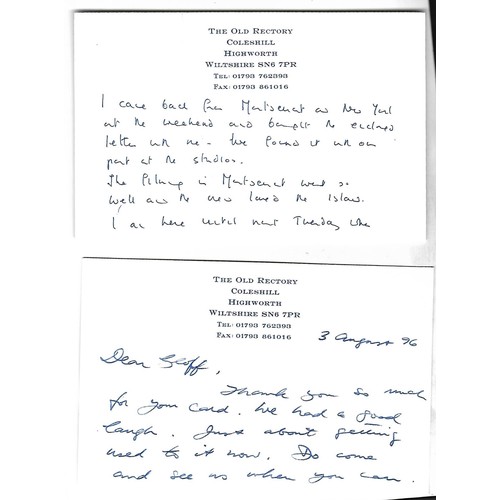 THE OLD RECTORY
COLESHILL
HIGHWORTH
WILTSHIRE SN6 7PR
TEL: 01793 762393
FAX: 01793 861016
I came back from Montserrat and New York
at the weekend and brought the enclosed
letter with me - We found it with our
post at the studios.
The filming in Montserrat went so
well and the crew loved the island.
I am here until next Tuesday when
THE OLD RECTORY
COLESHILL
HIGHWORTH
WILTSHIRE SN6 7PR
TEL: 01793 762393
FAX: 01793 861016
3 August 96
Dear Geoff,
Thank you so much
for your card. We had a good
laugh. Just about getting
used to it now. Do come
and see us when you can.